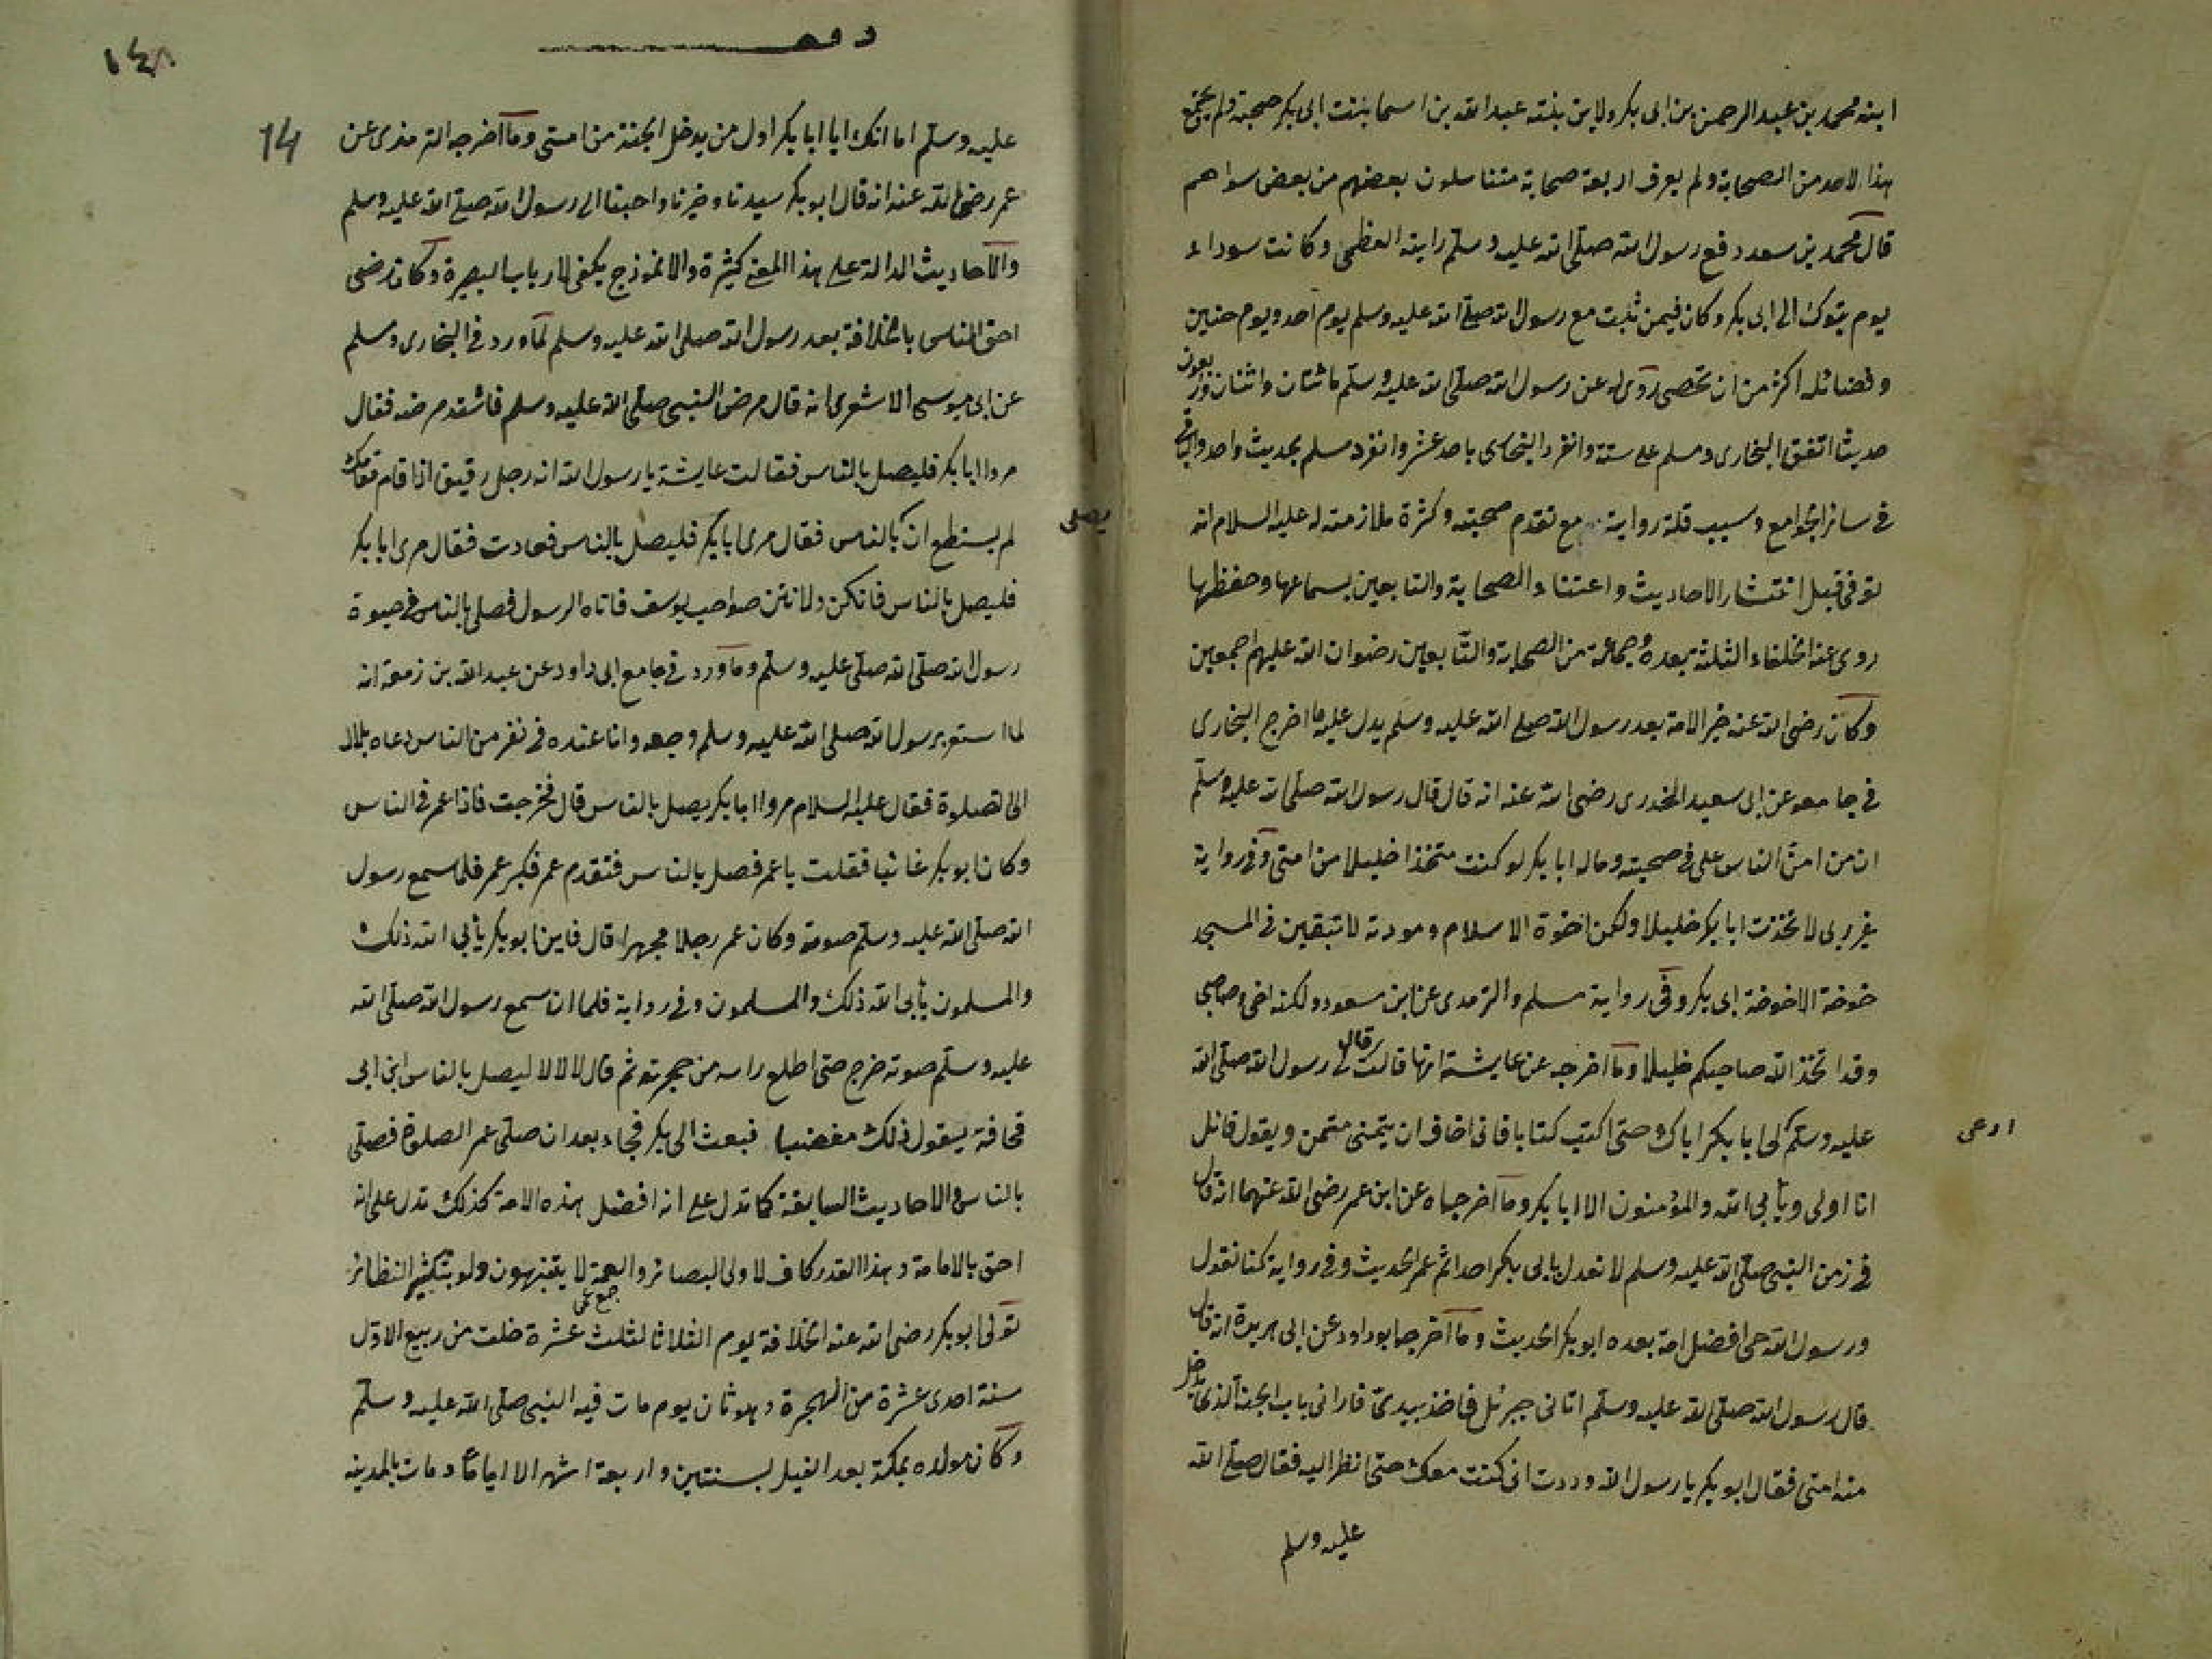 ابنه محمد بن عبد الرحمن بن ابى بكر ولابن بنته عبد الله بن اسما بنت ابى بكر صحبة ولم يجتمع
هذا لاحد من الصحابة ولم يعرف اربعة صحابة متناسلون بعضهم من بعض سواهم
قال محمد بن سعد دفع رسول الله صلى الله عليه وسلم رايته العظمى وكانت سوداء
يوم تبوك الى ابى بكر وكان فيمن ثبت مع رسول الله صلى الله عليه وسلم يوم احد ويوم حنين
وفضائله اكثر من ان تحصى روى له عن رسول الله صلى الله عليه وسلم مائتان واثنان واربعون
حديثا اتفق البخارى ومسلم على ستة وانفرد البخارى باحد عشر وانفرد مسلم بحديث واحد والباقى
فى سائر الجوامع وسبب قلة رواية مع تقدم صحبته وكثرة ملازمته له عليه السلام انه
توفى قبل انتشار الاحاديث واعتناء الصحابة والتابعين بسماعها وحفظها
روى عنه الخلفاء الثلثة بعده وجماعة من الصحابة والتابعين رضوان الله عليهم اجمعين
وكان رضى الله عنه خير الامة بعد رسول الله صلى الله عليه وسلم يدل عليه ما اخرج البخارى
فى جامعه عن ابى سعيد الخدرى رضى الله عنه انه قال قال رسول الله صلى الله عليه وسلم
ان من امن الناس على فى صحبته وماله ابا بكر لو كنت متخذا خليلا من امتى وفى رواية
غير ربى لاتخذت ابا بكر خليلا ولكن اخوة الاسلام ومودته لا تبقين فى المسجد
خوخة الاخوخة ابى بكر وفى رواية مسلم والترمدى عن ابن مسعود ولكنه اخى وصاحبى
وقد اتخذ الله صاحبكم خليلا وما اخرجه عن عايشة انها قالت قال لى رسول الله صلى الله
عليه وسلم ادعى لى ابا بكر اباك وحتى اكتب كتابا فانى اخاف ان يتمنى متمن ويقول قائل
انا اولى ويأبى الله والمؤمنون الا ابا بكر وما اخرجاه عن ابن عمر رضى الله عنهما انه قال
فى زمن النبى صلى الله عليه وسلم لا نعدل بابى بكر احدا ثم عمر الحديث وفى رواية كنا نقول
ورسول الله حى افضل امة بعده ابو بكر الحديث وما اخرجه ابو داود عن ابى هريرة انه قال
قال رسول الله صلى الله عليه وسلم اتانى جبرئل فاخذ بيدى فارانى باب الجنة الذى يدخل
منه امتى فقال ابو بكر يا رسول الله وددت انى كنت معك حتى انظر اليه فقال صلى الله
عليه وسلم
١٤٨
14
عليه وسلم اما انك يا ابا بكر اول من يدخل الجنة من امتى وما اخرجه الترمذى عن
عمر رضى الله عنه انه قال ابو بكر سيدنا وخيرنا واحبنا الى رسول الله صلى الله عليه وسلم
والاحاديث الدالة على هذا المعنى كثيرة والانموذج يكفى لارباب البصيرة وكان رضى
احق الناس بالخلافة بعد رسول الله صلى الله عليه وسلم لما ورد فى البخارى ومسلم
عن ابى موسى الاشعرى انه قال مرض النبى صلى الله عليه وسلم فاشتد مرضه فقال
مروا ابا بكر فليصل بالناس فقالت عايشة يا رسول الله انه رجل رقيق اذا قام مقامك
لم يستطع ان يصلى بالناس فقال مرى ابا بكر فليصل بالناس فعادت فقال مرى ابا بكر
فليصل بالناس فانكن صواحب يوسف فاتاه الرسول فصلى بالناس فى حيوة
رسول الله صلى الله صلى عليه وسلم وما ورد فى جامع ابى داود عن عبد الله بن زمعة انه
لما استعز برسول الله صلى الله عليه وسلم وجعه وانا عنده فى نفر من الناس دعاه بلال
الى الصلوة فقال عليه السلام مروا ابا بكر يصل بالناس قال فخرجت فاذا عمر فى الناس
وكان ابو بكر غائبا فقلت يا عمر فصل بالناس فتقدم عمر فكبر عمر فلما سمع رسول
الله صلى الله عليه وسلم صوته وكان عمر رجلا مجهرا قال فاين ابو بكر يأبى الله ذلك
والمسلمون يأبى الله ذلك والمسلمون وفى رواية فلما ان سمع رسول الله صلى الله
عليه وسلم صوته خرج حتى اطلع راسه من حجرته ثم قال لا لا لا ليصل بالناس ابن ابى
قحافة يقول ذلك مغضبا فبعث الى ابى بكر فجاء بعد ان صلى عمر الصلوة فصلى
بالناس والاحاديث السابقة كما تدل على انه افضل هذه الامة كذلك تدل على انه
احق بالامامة وهذا القدر كاف لاولى البصائر والعمه لا يتنبهون ولو بتكثير النظائر
جمع عمى
تولى ابو بكر رضى الله عنه الخلافة يوم الثلاثا لثلث عشرة خلت من ربيع الاول
سنة احدى عشرة من الهجرة وهو ثان يوم مات فيه النبى صلى الله عليه وسلم
وكان مولده بمكة بعد الفيل بسنتين واربعة اشهر الا اياما ومات بالمدينه